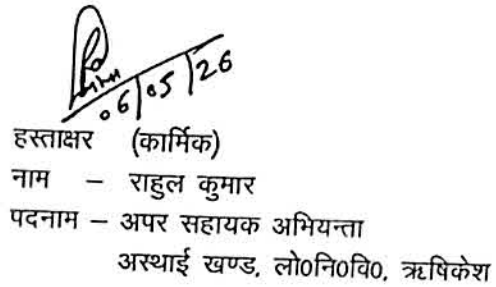 06/05/26
हस्ताक्षर (कार्मिक)
नाम – राहुल कुमार
पदनाम – अपर सहायक अभियन्ता
अस्थाई खण्ड, लो0नि0वि0, ऋषिकेश